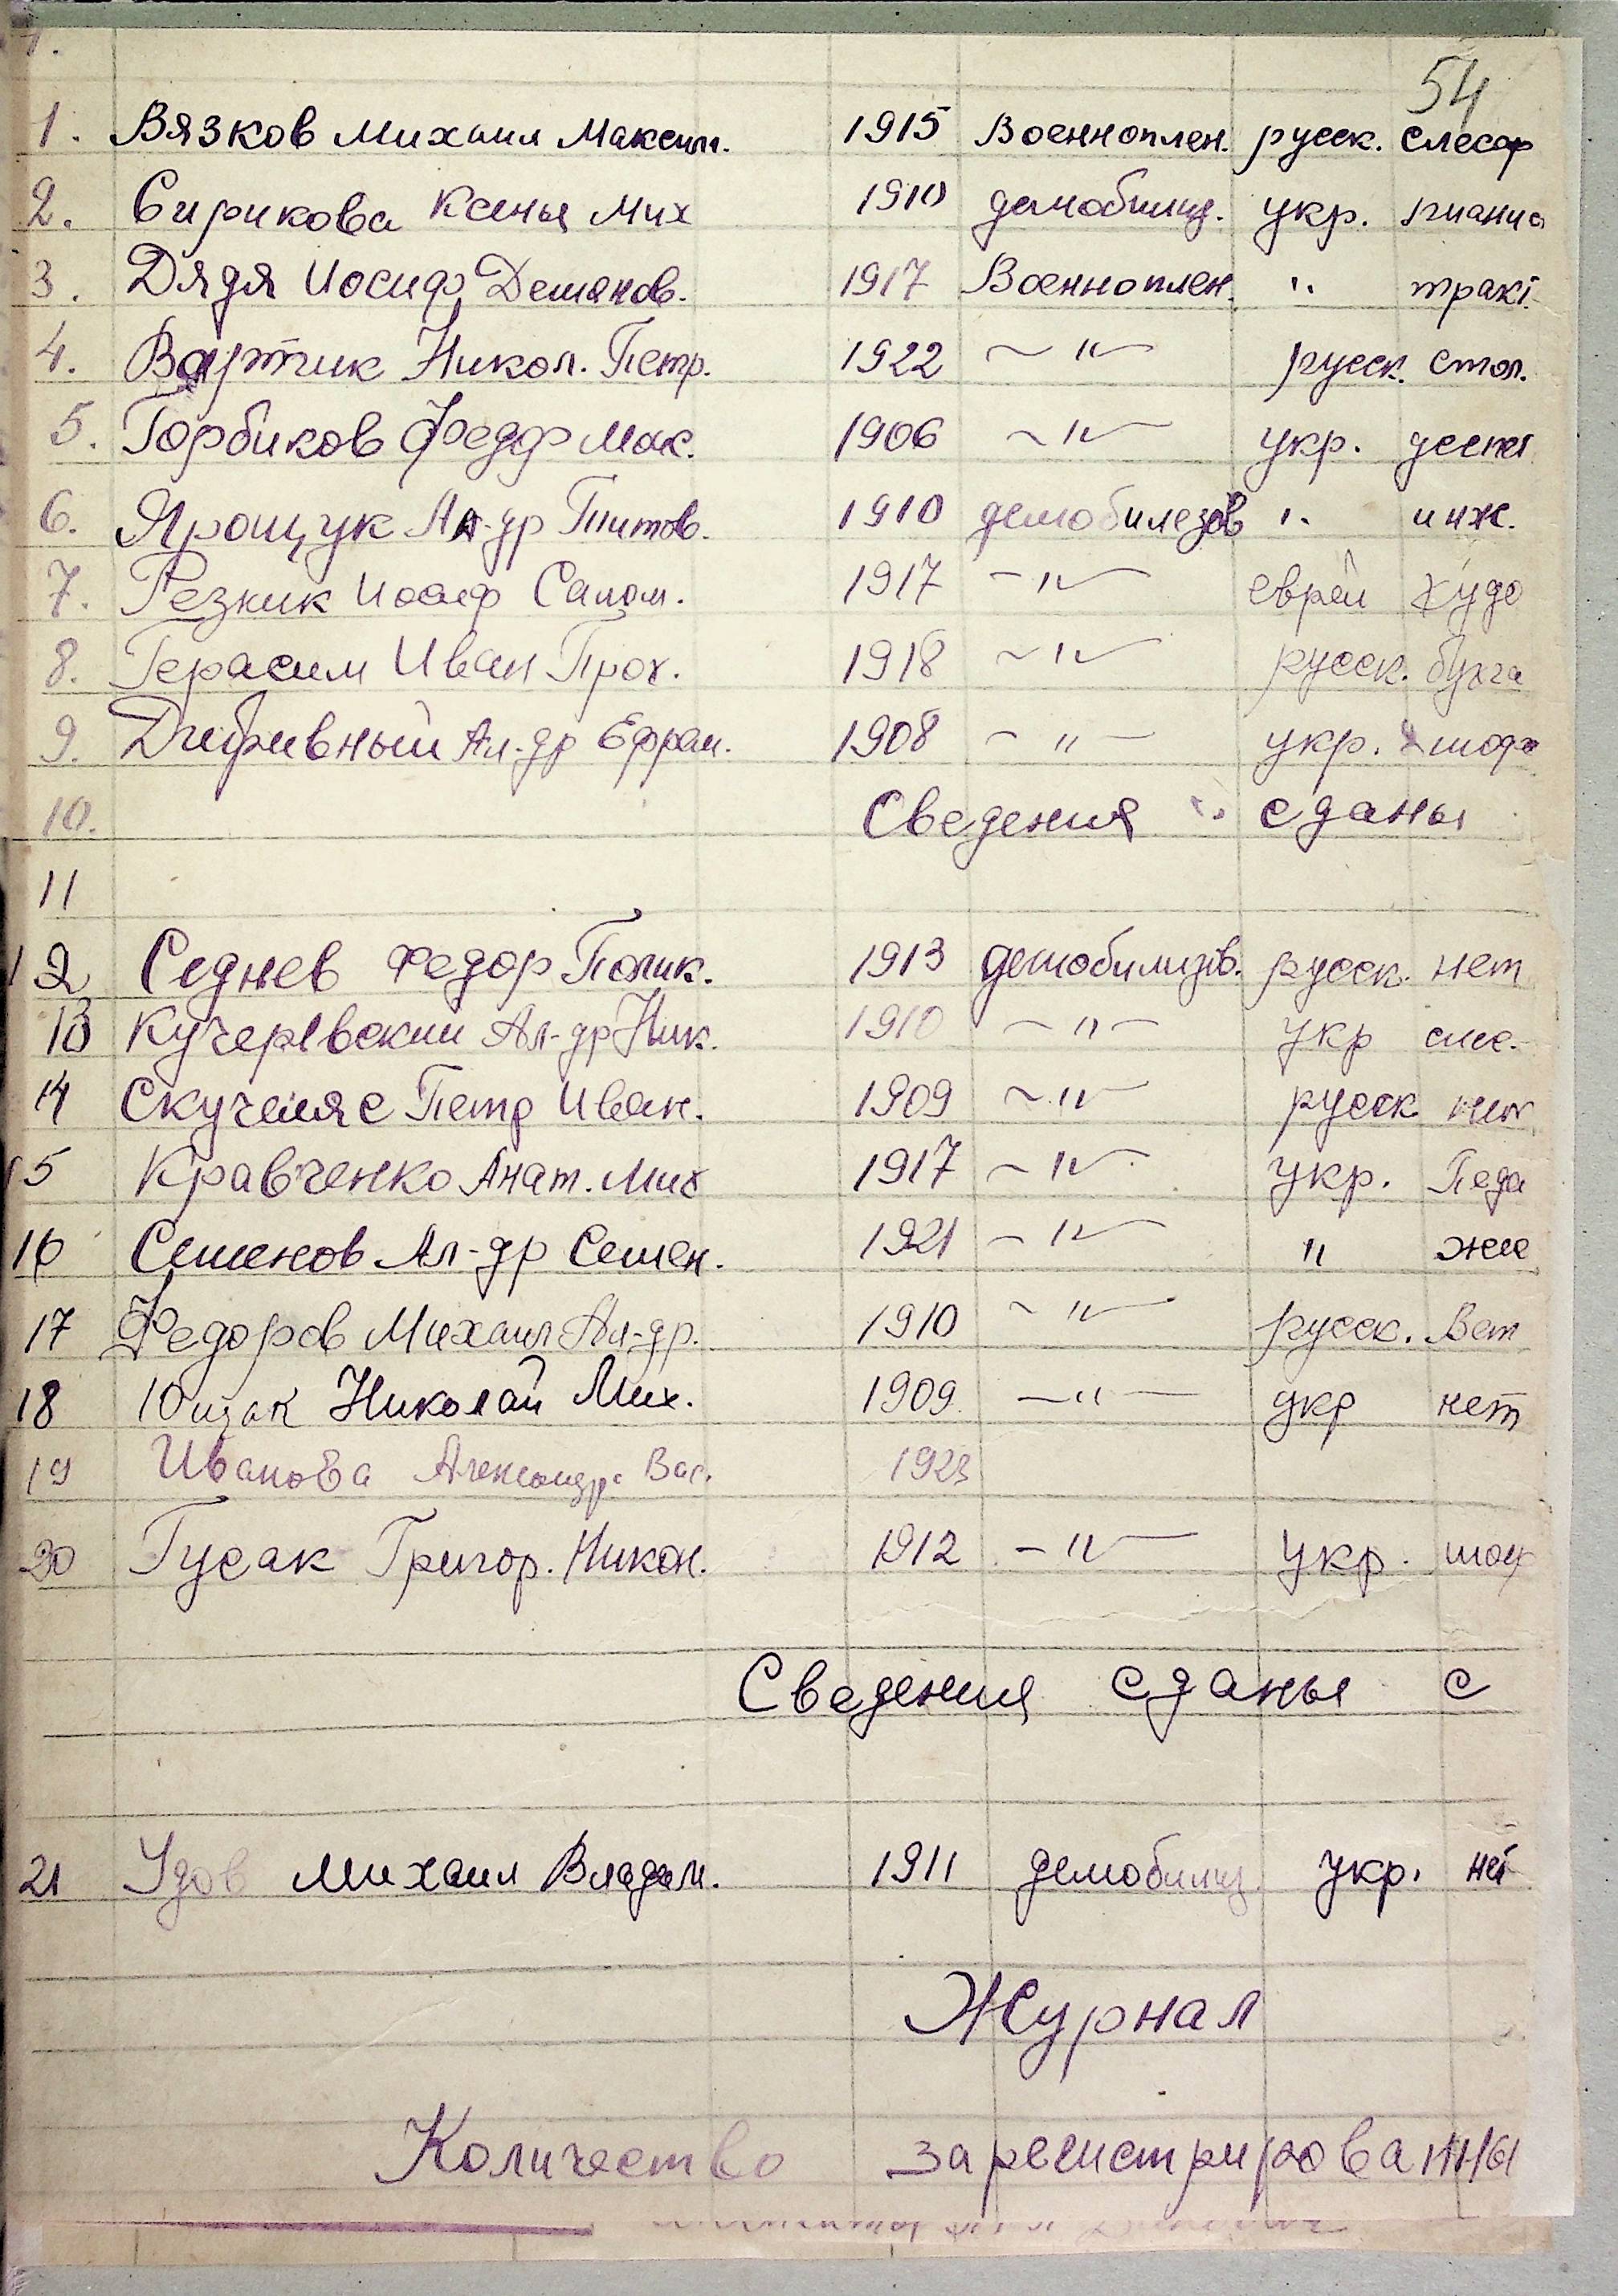 54
1. Вязков Михаил Максим. 1915 Военноплен. русск. слесар
2. Сирикова Ксенья Мих 1910 демобилиз. укр. пианис
3. Дядя Иосиф Демянов. 1917 Военноплен. " тракт.
4. Вартик Никол. Петр. 1922 ~ " ~ русск. стол.
5. Горбиков Федор Мак. 1906 ~ " ~ укр.
6. Ярощук Ал-др Титов. 1910 демобилезов " инж.
7. Резник Иосиф Салом. 1917 - " - еврей худо
8. Герасим Иван Прох. 1918 ~ " ~ русск. бухга
9. Ал-др Ефрем. 1908 - " - укр. шофе
10. Сведения сданы
11
12 Седнев Федор Полик. 1913 демобилизов. русск. нет
13 Кучеревский Ал-др Ник. 1910 - " - укр слес.
14 Петр Иван. 1909 ~ " ~ русск
15 Кравченко Анат. Мих 1917 - " - укр. Педа
16 Семенов Ал-др Семен. 1921 - " - "
17 Федоров Михаил Ал-др. 1910 ~ " ~ русск. Вет
18 Ющак Николай Мих. 1909. - " - укр нет
19 Иванова Александра Вас. 1923
20 Гусак Григор. Никон. 1912 - " - укр. шоф
Сведения сданы с
21 Удов Михаил Владим. 1911 демобилиз. укр. нет
Журнал
Количество зарегистрированны